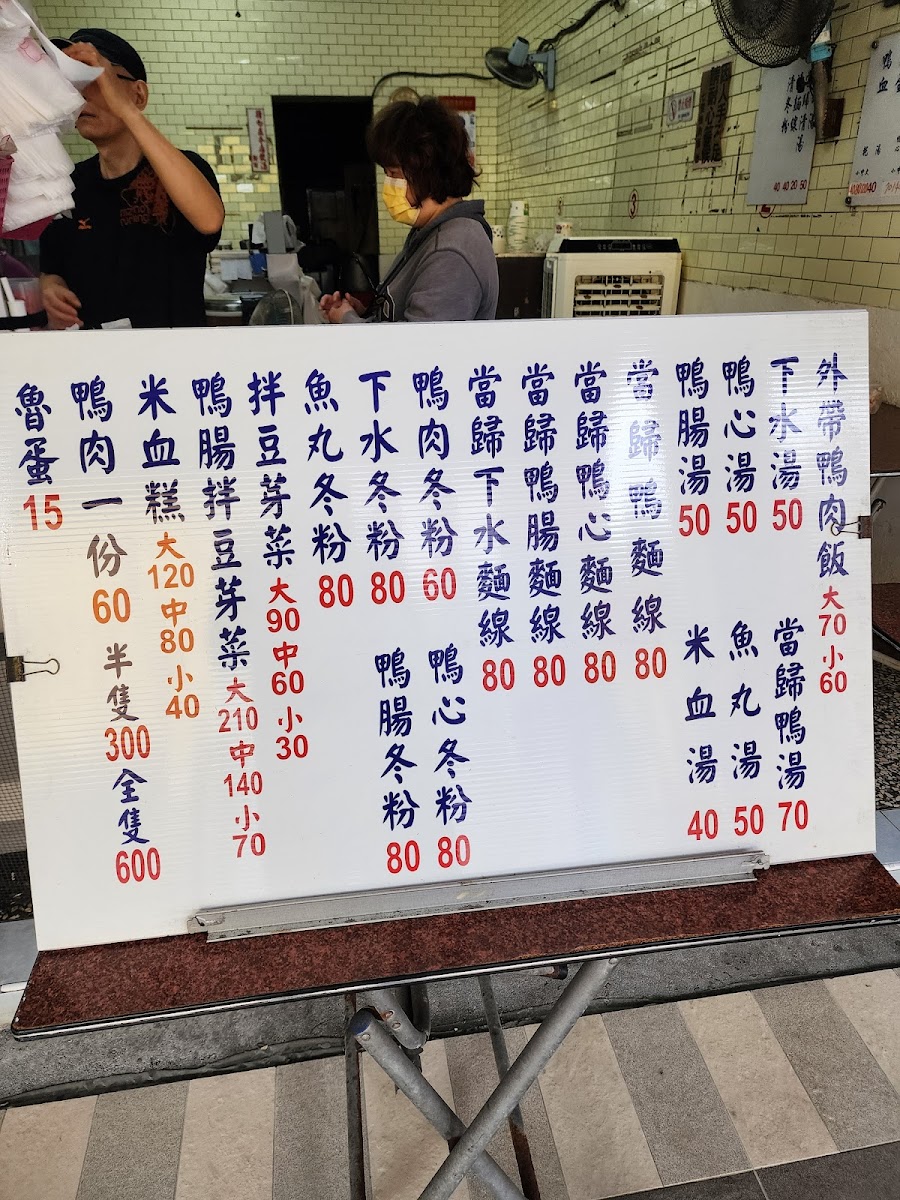 外帶鴨肉飯 大70 小60
下水湯 50
當歸鴨湯 70
鴨心湯 50
魚丸湯 50
鴨腸湯 50
米血湯 40
當歸鴨麵線 80
當歸鴨心麵線 80
當歸鴨腸麵線 80
當歸下水麵線 80
鴨肉冬粉 60
鴨心冬粉 80
下水冬粉 80
鴨腸冬粉 80
魚丸冬粉 80
拌豆芽菜 大90 中60 小30
鴨腸拌豆芽菜 大210 中140 小70
米血糕 大120 中80 小40
鴨肉一份 60 半隻 300 全隻 600
魯蛋 15
40 40 20 50